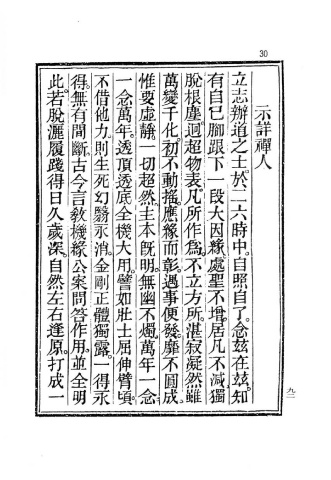 30
示詳禪人
立志辦道之士。於二六時中。自照自了。念茲在茲。知
有自己腳跟下一段大因緣。處聖不增。居凡不減。獨
脫根塵。迥超物表。凡所作為。不立方所。湛寂凝然。雖
萬變千化。初不動搖。應緣而彰。遇事便發。靡不圓成。
惟要虛靜。一切超然。主本旣明。無幽不燭。萬年一念。
一念萬年。透頂透底。全機大用。譬如壯士屈伸臂頃。
不借他力。則生死幻翳永消。金剛正體獨露。一得永
得。無有間斷。古今言敎機緣公案。問答作用。並全明
此。若脫灑履踐得日久歲深。自然左右逢原。打成一